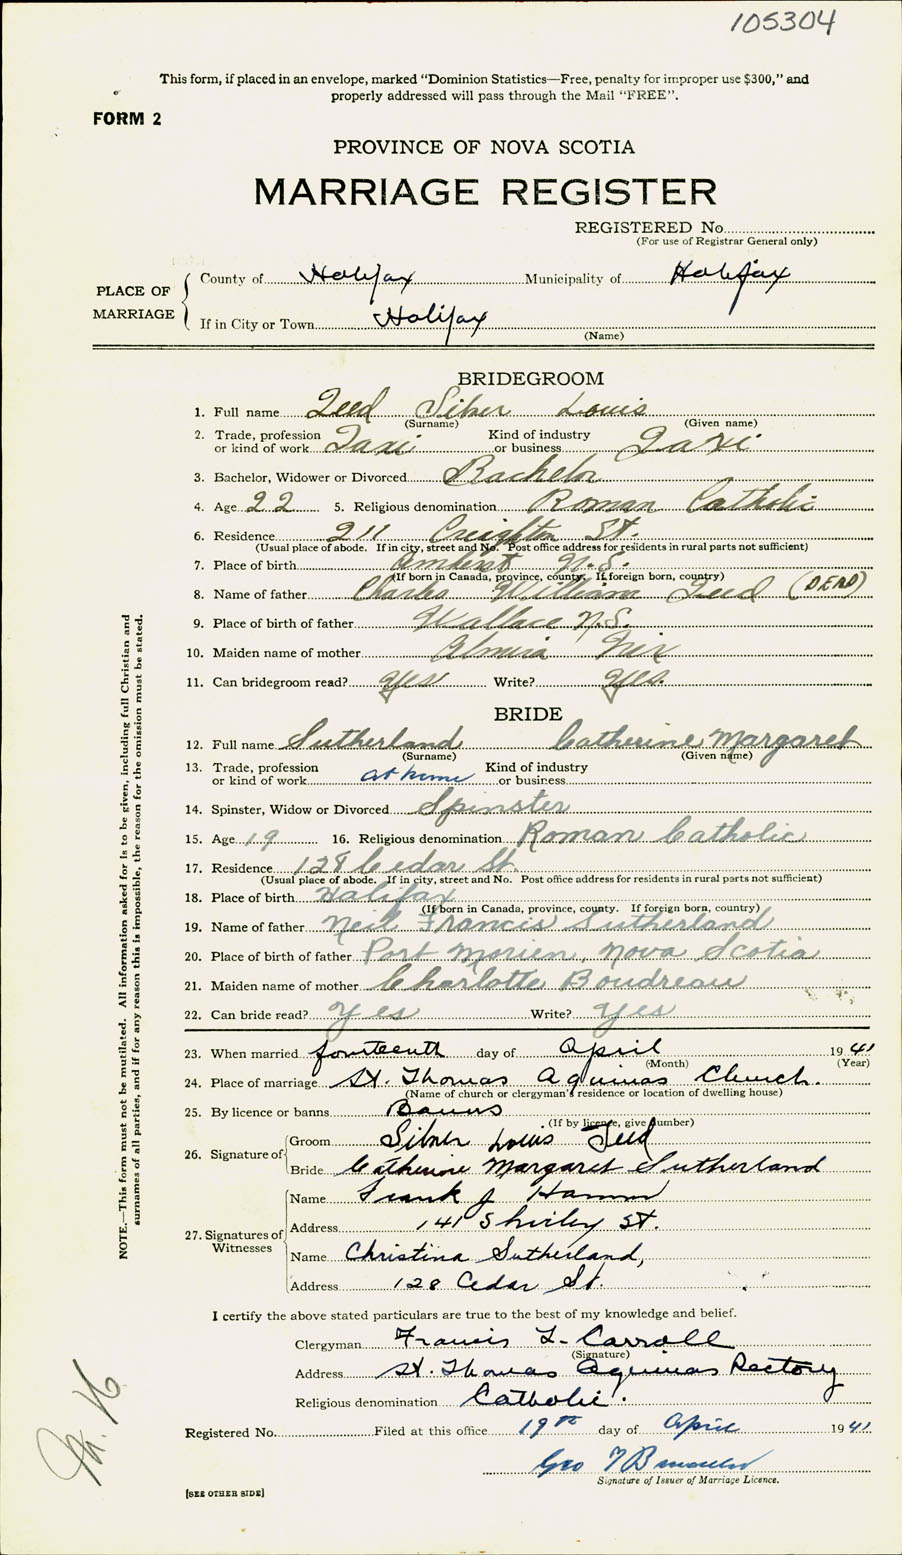 105304
This form, if placed in an envelope, marked “Dominion Statistics—Free, penalty for improper use $300,” and
properly addressed will pass through the Mail “FREE”.
FORM 2
PROVINCE OF NOVA SCOTIA
MARRIAGE REGISTER
REGISTERED No.
(For use of Registrar General only)
PLACE OF MARRIAGE
County of Halifax Municipality of Halifax
If in City or Town Halifax
(Name)
BRIDEGROOM
1. Full name Teed Silver Louis
(Surname) (Given name)
2. Trade, profession or kind of work Taxi Kind of industry or business Taxi
3. Bachelor, Widower or Divorced Bachelor
4. Age 22 5. Religious denomination Roman Catholic
6. Residence 211 Creighton St.
(Usual place of abode. If in city, street and No. Post office address for residents in rural parts not sufficient)
7. Place of birth Amherst N.S.
(If born in Canada, province, county. If foreign born, country)
8. Name of father Charles William Teed (DEAD)
9. Place of birth of father Wallace N.S.
10. Maiden name of mother Almira
11. Can bridegroom read? Yes Write? Yes.
BRIDE
12. Full name Sutherland Catherine Margaret
(Surname) (Given name)
13. Trade, profession or kind of work at home Kind of industry or business
14. Spinster, Widow or Divorced Spinster
15. Age 19 16. Religious denomination Roman Catholic
17. Residence 128 Cedar St.
(Usual place of abode. If in city, street and No. Post office address for residents in rural parts not sufficient)
18. Place of birth Halifax
(If born in Canada, province, county. If foreign born, country)
19. Name of father Neil Francis Sutherland
20. Place of birth of father Port Morien, Nova Scotia
21. Maiden name of mother Charlotte Boudreau
22. Can bride read? Yes Write? Yes
23. When married fourteenth day of April 1941
(Month) (Year)
24. Place of marriage St. Thomas Aquinas Church.
(Name of church or clergyman's residence or location of dwelling house)
25. By licence or banns Banns
(If by licence, give number)
26. Signature of
Groom Silver Louis Teed
Bride Catherine Margaret Sutherland
27. Signatures of Witnesses
Name Frank J
Address 141 Shirley St.
Name Christina Sutherland,
Address 128 Cedar St.
I certify the above stated particulars are true to the best of my knowledge and belief.
Clergyman Francis L. Carroll
(Signature)
Address St. Thomas Aquinas Rectory
Religious denomination Catholic.
Registered No. Filed at this office 19th day of April 1941
Geo
Signature of Issuer of Marriage Licence.
[SEE OTHER SIDE]
NOTE.—This form must not be mutilated. All information asked for is to be given, including full Christian and
surnames of all parties, and if for any reason this is impossible, the reason for the omission must be stated.